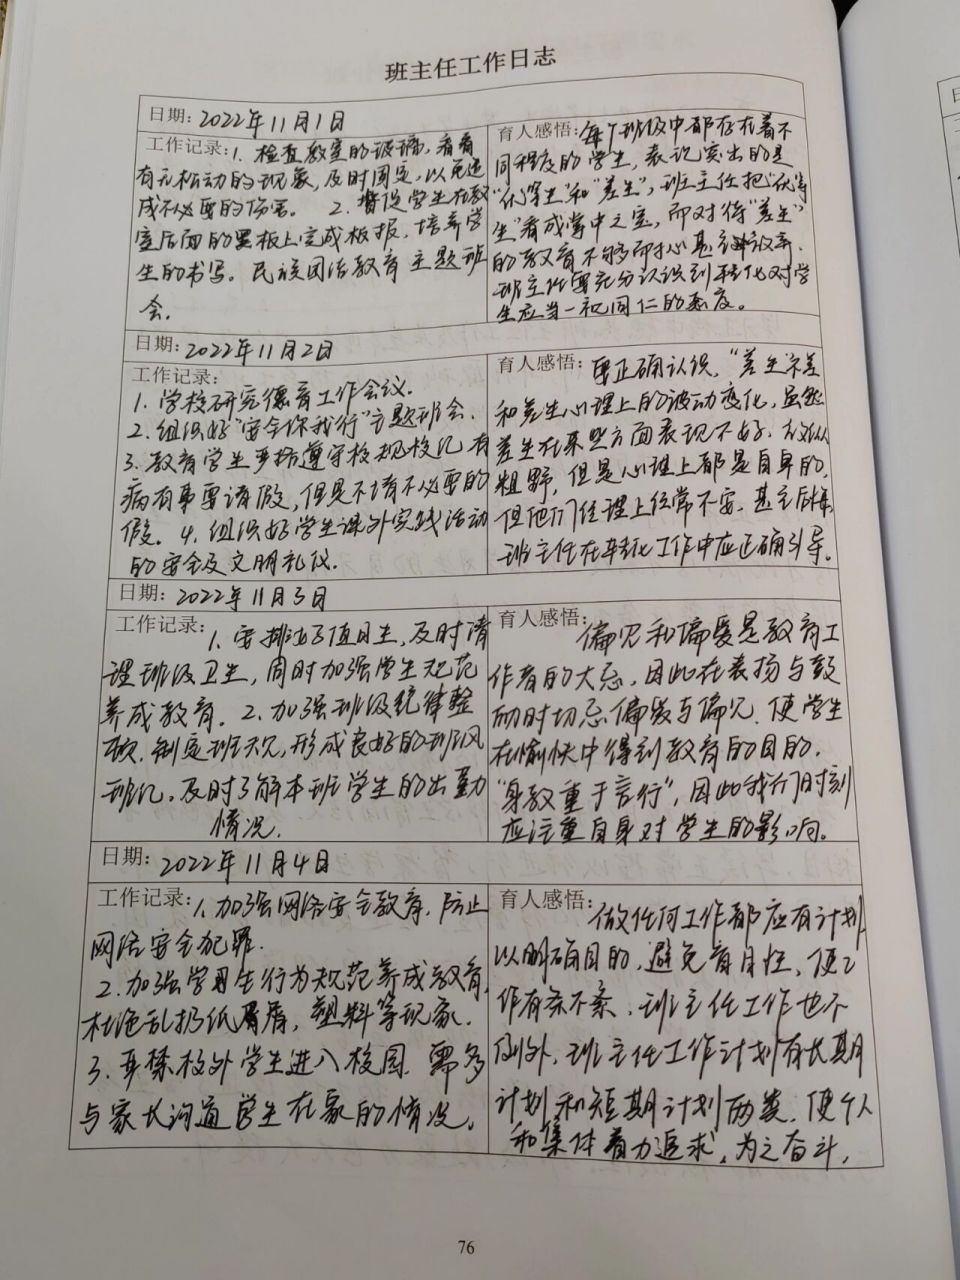 班主任工作日志
日期：2022年11月1日
工作记录：1、检查教室的玻璃，看看
有无松动的现象，及时固定，以免造
成不必要的伤害。 2、督促学生在教
室后面的黑板上完成板报，培养学
生的书写。民族团结教育主题班
会。
育人感悟：每个班级中都存在着不
同程度的学生，表现突出的是
“优等生”和“差生”，班主任把“优等
生”看成掌中之宝，而对待“差生”
的教育不够耐心甚至放弃。
班主任要充分认识到转化对学
生应当一视同仁的态度。
日期：2022年11月2日
工作记录：
1. 学校研究德育工作会议。
2. 组织好“安全你我行”主题班会。
3. 教育学生严格遵守校规校纪有
病有事要请假，但是不请不必要的
假。 4. 组织好学生课外实践活动
的安全及文明礼仪。
育人感悟： 要正确认识，“差生”不差
和差生心理上的波动变化，虽然
差生在某些方面表现不好、
粗野，但是心理上都是自卑的，
但他们心理上经常不安、甚至
班主任在转化工作中应正确引导。
日期：2022年11月3日
工作记录：1、安排好值日生，及时清
理班级卫生，同时加强学生规范
养成教育。2、加强班级纪律整
顿，制定班规，形成良好的班风
班纪。及时了解本班学生的出勤
情况.
育人感悟： 偏见和偏爱是教育工
作者的大忌，因此在表扬与鼓
励时切忌偏爱与偏见，使学生
在愉快中得到教育的目的，
“身教重于言行”，因此我们时刻
应注重自身对学生的影响。
日期：2022年11月4日
工作记录：1、加强网络安全教育，防止
网络安全犯罪.
2、加强学生行为规范养成教育，
杜绝乱扔纸屑，塑料等现象.
3、严禁校外学生进入校园 需多
与家长沟通学生在家的情况。
育人感悟： 做任何工作都应有计划
以明确目的，避免盲目性，使工
作有条不紊，班主任工作也不
例外，班主任工作计划有长期
计划和短期计划两类，使个人
和集体着力追求，为之奋斗，
76